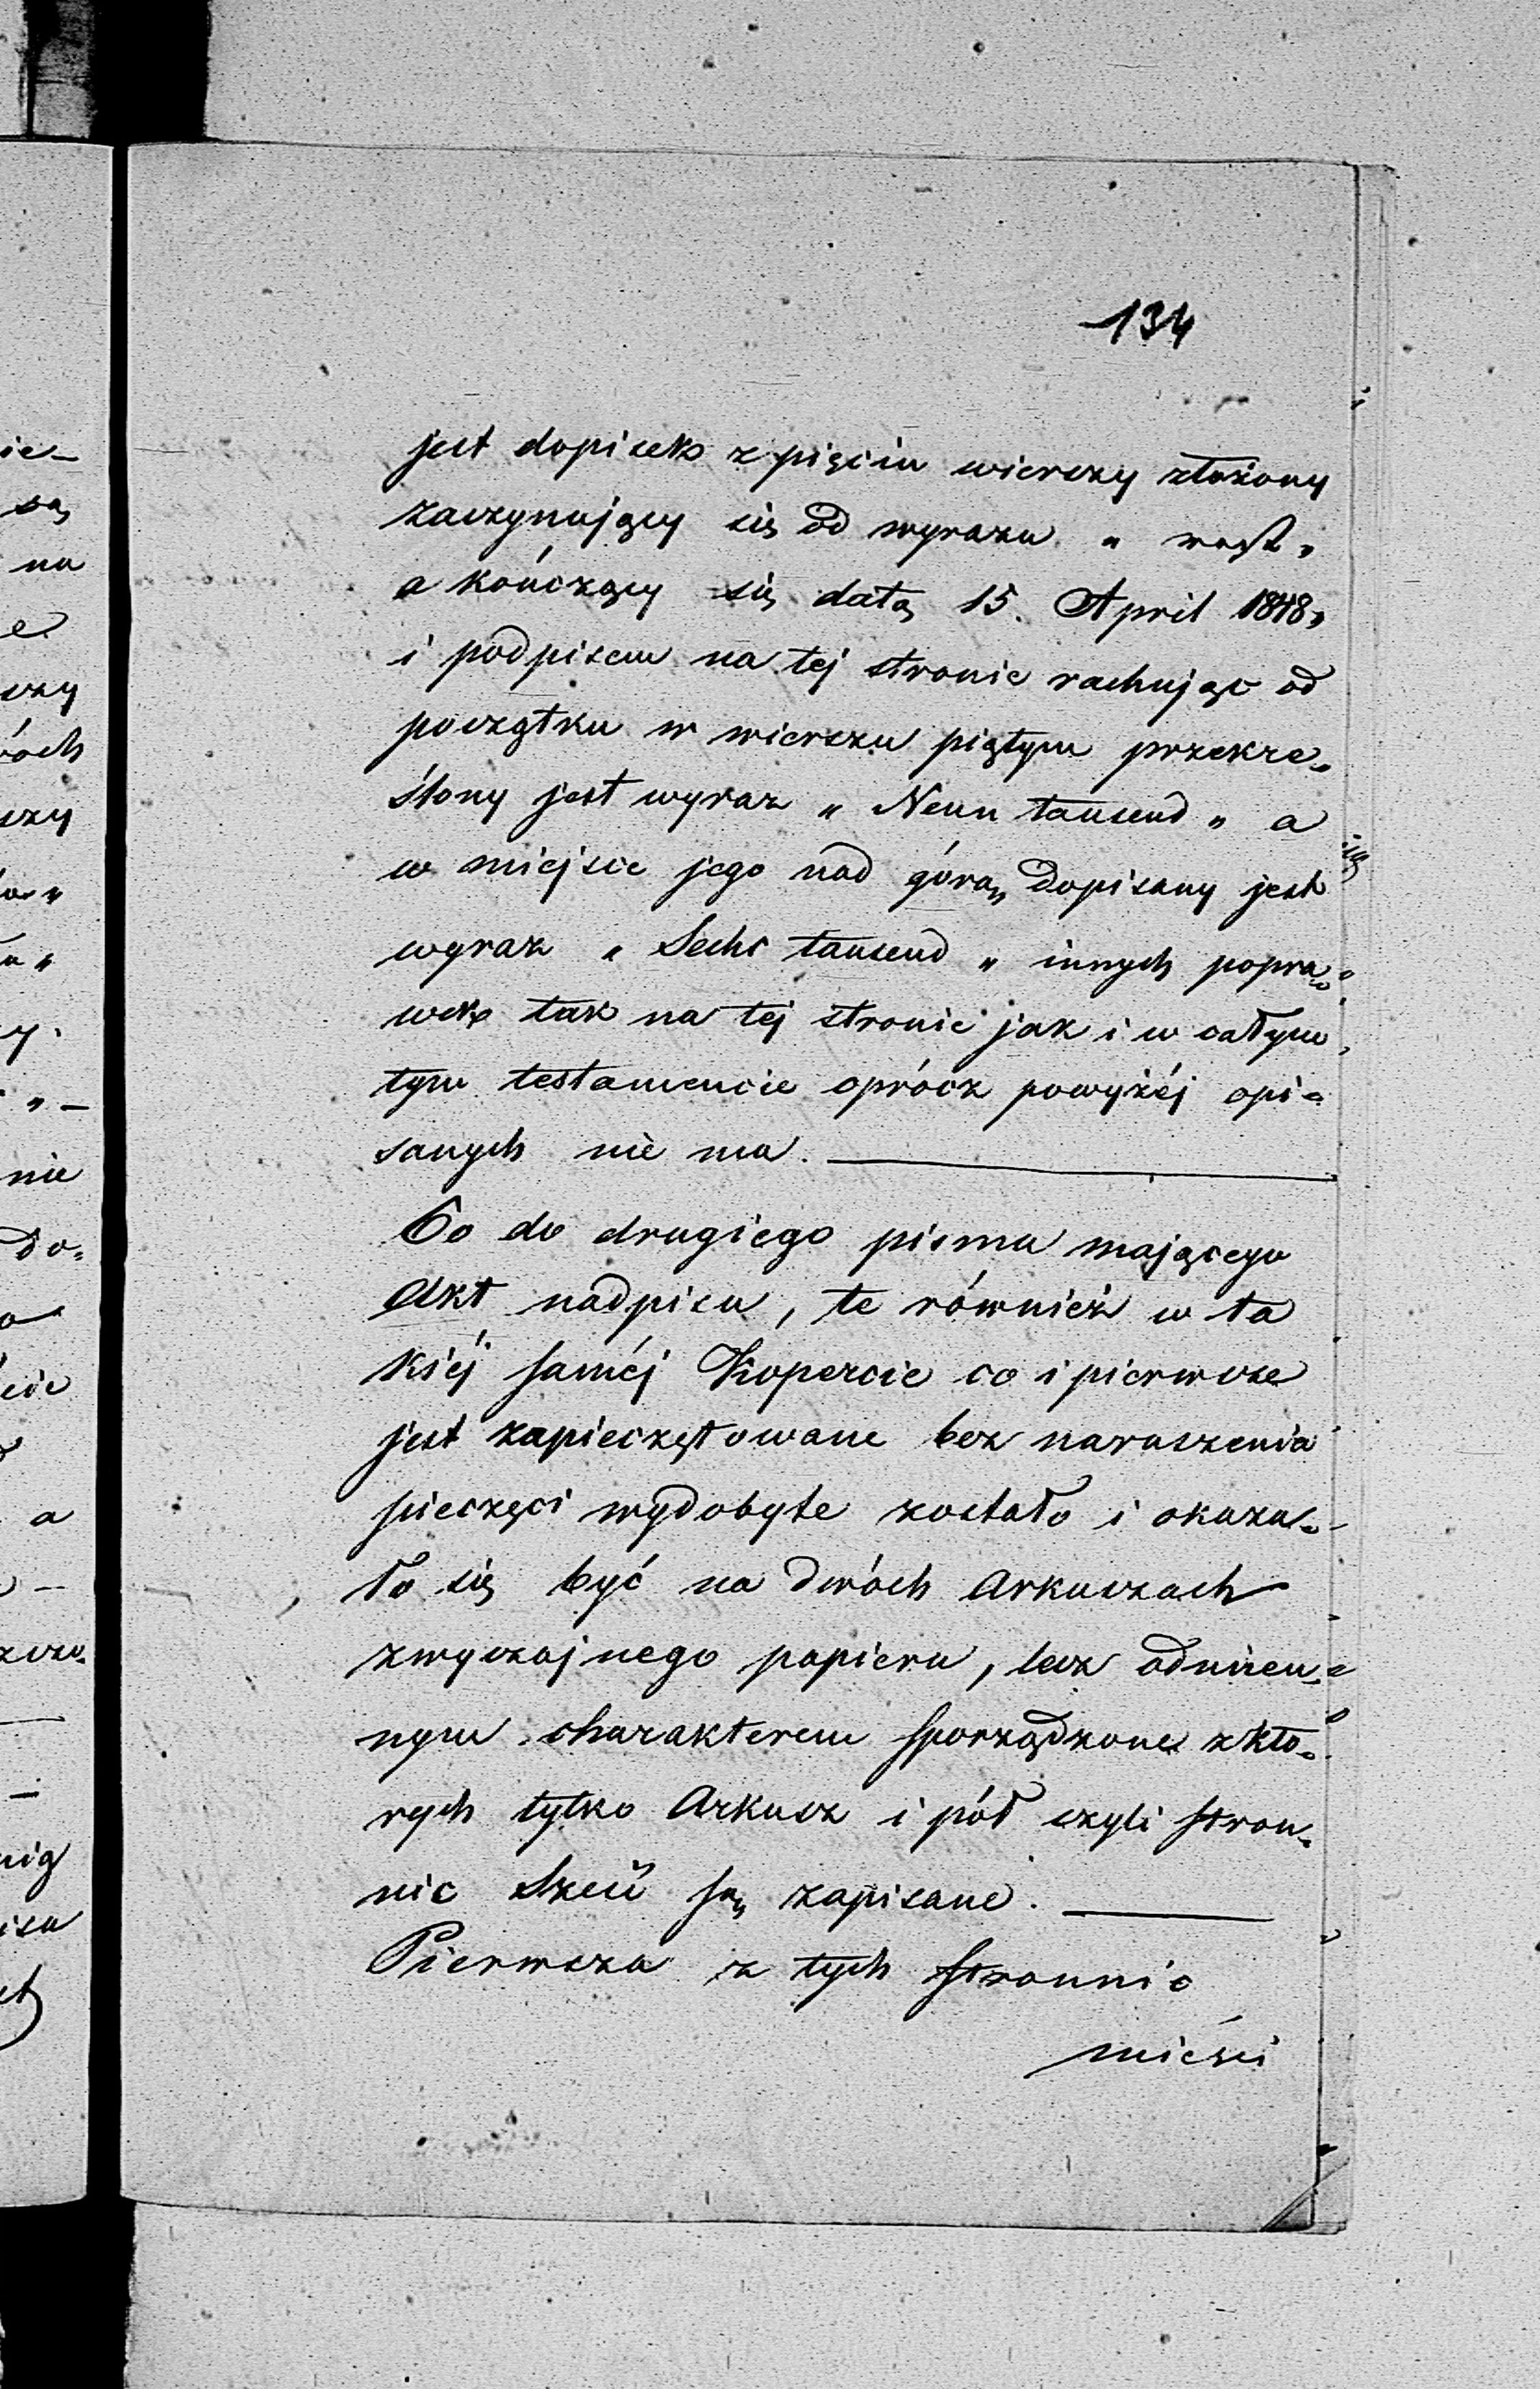 134
jest dopisek z pięciu wierszy złożony
zaczynający się od wyrazu "
a kończący się datą 15. April 1848 "
i podpisem na tej stronie rachując od
początku w wierszu piątym przekre=
ślony jest wyraz " Neun tausend " a
w miejsce jego nad górą dopisany jest
wyraz " Sechs tausend " innych popra=
wek tak na tej stronie jak i w całym
tym testamencie oprócz powyżéj opi=
sanych nie ma.
Co do drugiego pisma mającego
Akt nadpisu, te również w ta
kiéj saméj Kopercie co i pierwsze
jest zapieczętowane bez naruszenia
pieczęci wydobyte zostało i okaza=
ło się być na dwóch Arkuszach
zwyczajnego papieru, lecz odmien=
nym charakterem sporządzone z któ=
rych tylko Arkusz i pół czyli stron=
nic Sześć są zapisane.
Pierwsza z tych stronnic
mieści